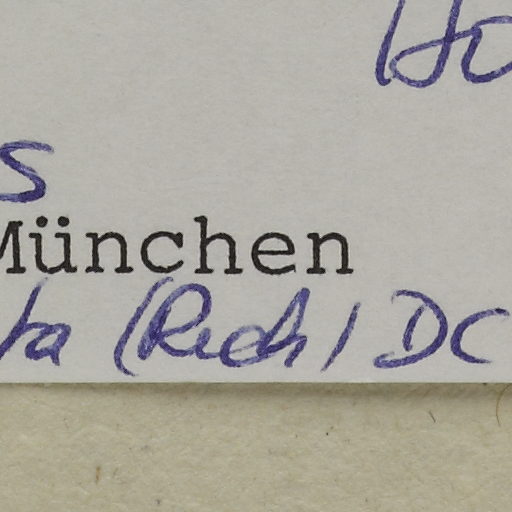 Ho
s
München
ta (Rich) DC